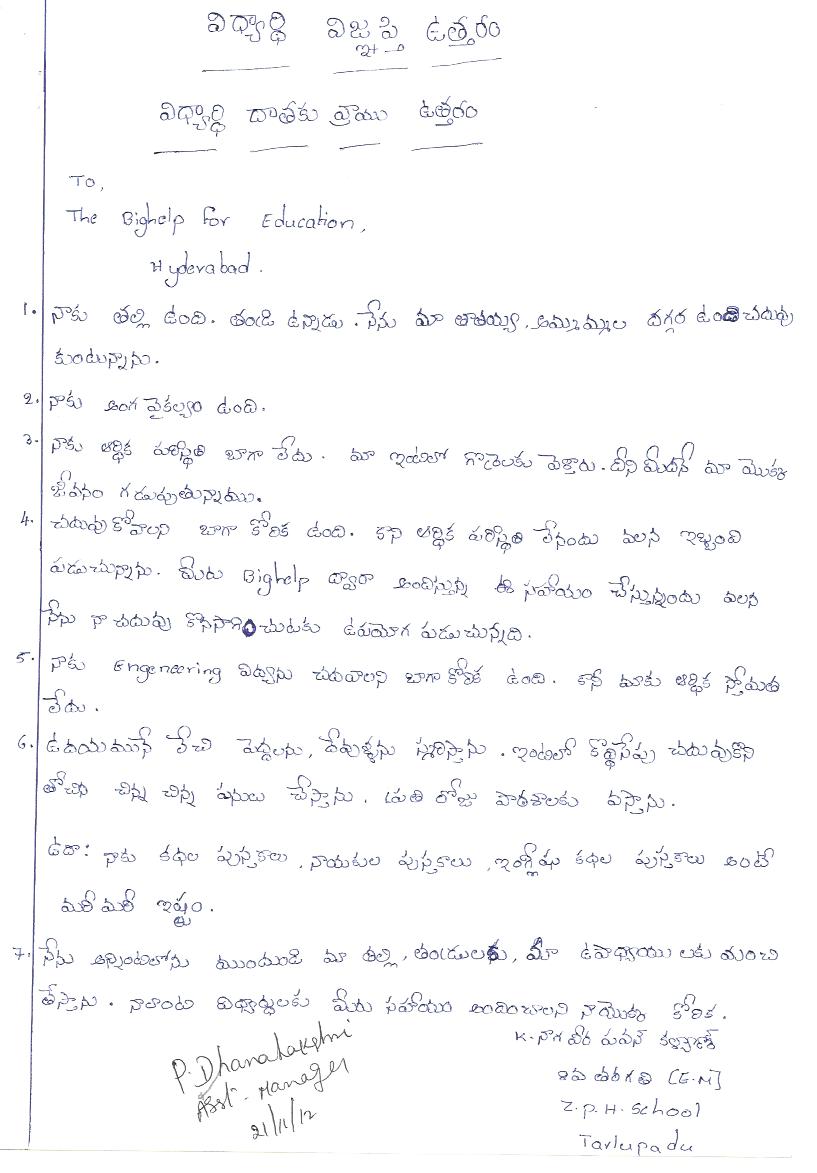 విద్యార్థి విజ్ఞప్తి ఉత్తరం
విద్యార్థి దాతకు వ్రాయు ఉత్తరం
To,
The Bighelp for Education,
Hyderabad.
1. నాకు తల్లి ఉంది. తండ్రి ఉన్నాడు. నేను మా తాతయ్య, అమ్మమ్మల దగ్గర ఉండి చదువు
కుంటున్నాను.
2. నాకు అంగ వైకల్యం ఉంది.
3. నాకు ఆర్థిక పరిస్థితి బాగా లేదు. మా ఇంటిలో గొర్రెలకు వెళ్తారు. దీని మీదనే మా యొక్క
జీవనం గడుపుతున్నాము.
4. చదువుకోవాలని బాగా కోరిక ఉంది. కాని ఆర్థిక పరిస్థితి లేనందు వలన ఇబ్బంది
పడుచున్నాను. మీరు Bighelp ద్వారా అందిస్తున్న ఈ సహాయం చేస్తున్నందు వలన
నేను నా చదువు కొనసాగించుటకు ఉపయోగ పడుచున్నది.
5. నాకు Engeneering విద్యను చదవాలని బాగా కోరిక ఉంది. కానీ మాకు ఆర్థిక స్తోమత
లేదు.
6. ఉదయమునే లేచి పెద్దలను, దేవుళ్ళను స్మరిస్తాను. ఇంటిలో కొద్దిసేపు చదువుకొని
తోచిన చిన్న చిన్న పనులు చేస్తాను. ప్రతి రోజు పాఠశాలకు వస్తాను.
ఉదా: నాకు కథల పుస్తకాలు, నాయకుల పుస్తకాలు, ఇంగ్లీషు కథల పుస్తకాలు అంటే
మరీ మరీ ఇష్టం.
7. నేను అన్నింటిలోను ముందుండి మా తల్లి, తండ్రులకు, మా ఉపాధ్యాయు లకు మంచి
తేస్తాను. నాలాంటి విద్యార్థులకు మీరు సహాయం అందించాలని నాయొక్క కోరిక.
K. నాగ వీర పవన్ కళ్యాణ్
8వ తరగతి [E.M]
Z.P.H. School
Tarlupadu
P. Dhanalakshmi
Asst. Manager
21/11/12